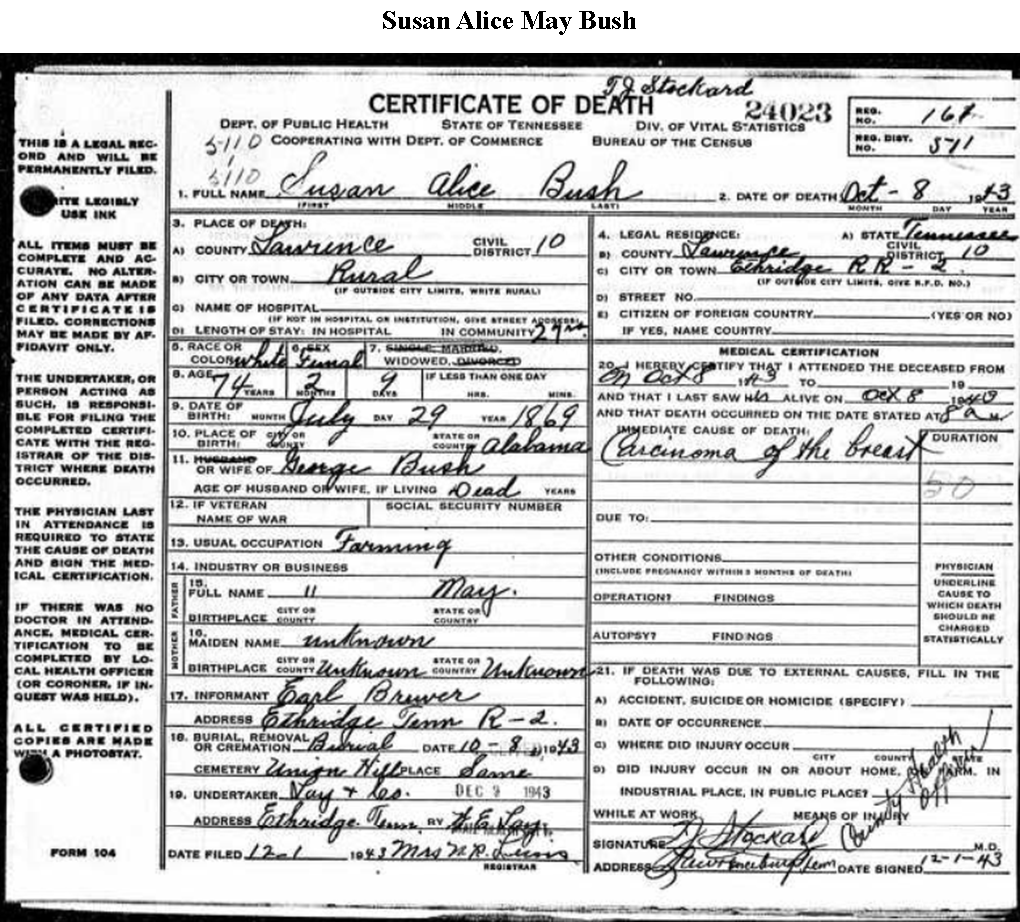 Susan Alice May Bush
T J Stockard
CERTIFICATE OF DEATH
24023
DEPT. OF PUBLIC HEALTH STATE OF TENNESSEE DIV. OF VITAL STATISTICS
5110 COOPERATING WITH DEPT. OF COMMERCE BUREAU OF THE CENSUS
5110
REG. NO. 167
REG. DIST. NO. 511
1. FULL NAME Susan Alice Bush 2. DATE OF DEATH Oct - 8 1943
(FIRST) MIDDLE LAST) MONTH DAY YEAR
THIS IS A LEGAL RECORD AND WILL BE PERMANENTLY FILED.
WRITE LEGIBLY
USE INK
ALL ITEMS MUST BE
COMPLETE AND AC-
CURATE. NO ALTER-
ATION CAN BE MADE
OF ANY DATA AFTER
CERTIFICATE IS
FILED. CORRECTIONS
MAY BE MADE BY AF-
FIDAVIT ONLY.
THE UNDERTAKER, OR
PERSON ACTING AS
SUCH, IS RESPONSI-
BLE FOR FILING THE
COMPLETED CERTIFI-
CATE WITH THE REG-
ISTRAR OF THE DIS-
TRICT WHERE DEATH
OCCURRED.
THE PHYSICIAN LAST
IN ATTENDANCE IS
REQUIRED TO STATE
THE CAUSE OF DEATH
AND SIGN THE MED-
ICAL CERTIFICATION.
IF THERE WAS NO
DOCTOR IN ATTEND-
ANCE, MEDICAL CER-
TIFICATION TO BE
COMPLETED BY LO-
CAL HEALTH OFFICER
(OR CORONER, IF IN-
QUEST WAS HELD).
ALL CERTIFIED
COPIES ARE MADE
WITH A PHOTOSTAT.
FORM 104
3. PLACE OF DEATH:
A) COUNTY Lawrence CIVIL DISTRICT 10
B) CITY OR TOWN Rural
(IF OUTSIDE CITY LIMITS, WRITE RURAL)
C) NAME OF HOSPITAL
(IF NOT IN HOSPITAL OR INSTITUTION, GIVE STREET ADDRESS)
D) LENGTH OF STAY: IN HOSPITAL IN COMMUNITY
5. RACE OR COLOR White 6. SEX Femal 7. SINGLE, MARRIED, WIDOWED, DIVORCED
8. AGE 74 YEARS 2 MONTHS 9 DAYS IF LESS THAN ONE DAY HRS. MINS.
9. DATE OF BIRTH: MONTH July DAY 29 YEAR 1869
10. PLACE OF BIRTH: CITY OR COUNTY STATE OR COUNTRY Alabama
11. HUSBAND OR WIFE OF George Bush
AGE OF HUSBAND OR WIFE, IF LIVING Dead YEARS
12. IF VETERAN NAME OF WAR SOCIAL SECURITY NUMBER
13. USUAL OCCUPATION Farming
14. INDUSTRY OR BUSINESS
FATHER 15. FULL NAME " May.
BIRTHPLACE CITY OR COUNTY STATE OR COUNTRY
MOTHER 16. MAIDEN NAME unknown
BIRTHPLACE CITY OR COUNTY Unknown STATE OR COUNTRY Unknown
17. INFORMANT Earl Brewer
ADDRESS Ethridge Tenn R-2.
18. BURIAL, REMOVAL OR CREMATION Burial DATE 10-8 1943
CEMETERY Union Hill PLACE Same
19. UNDERTAKER Lay & Co. DEC 9 1943
ADDRESS Ethridge Tenn. BY W E Lay
DATE FILED 12-1 1943 Mrs M.R. Luna
REGISTRAR
4. LEGAL RESIDENCE: A) STATE Tennessee
B) COUNTY Lawrence CIVIL DISTRICT 10
C) CITY OR TOWN Ethridge RR-2
(IF OUTSIDE CITY LIMITS, GIVE R.F.D. NO.)
D) STREET NO.
E) CITIZEN OF FOREIGN COUNTRY (YES OR NO)
IF YES, NAME COUNTRY
MEDICAL CERTIFICATION
20. I HEREBY CERTIFY THAT I ATTENDED THE DECEASED FROM
On Oct 8 1943 TO 19
AND THAT I LAST SAW ALIVE ON Oct 8 1943
AND THAT DEATH OCCURRED ON THE DATE STATED AT 8 a m
IMMEDIATE CAUSE OF DEATH: DURATION
Carcinoma of the breast
50
DUE TO:
OTHER CONDITIONS
(INCLUDE PREGNANCY WITHIN 3 MONTHS OF DEATH)
OPERATION? FINDINGS
AUTOPSY? FINDINGS
PHYSICIAN
UNDERLINE
CAUSE TO
WHICH DEATH
SHOULD BE
CHARGED
STATISTICALLY
21. IF DEATH WAS DUE TO EXTERNAL CAUSES, FILL IN THE
FOLLOWING:
A) ACCIDENT, SUICIDE OR HOMICIDE (SPECIFY)
B) DATE OF OCCURRENCE
C) WHERE DID INJURY OCCUR
CITY COUNTY STATE
D) DID INJURY OCCUR IN OR ABOUT HOME, FARM, IN
INDUSTRIAL PLACE, IN PUBLIC PLACE?
WHILE AT WORK MEANS OF INJURY
SIGNATURE T J Stockard M.D.
County Health Officer
ADDRESS Lawrenceburg Tenn DATE SIGNED 12-1-43